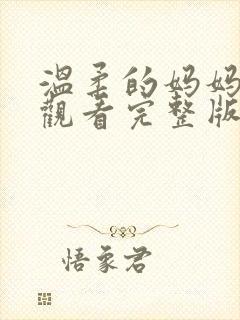 溫柔的妈妈
觀看完整版
悟象君